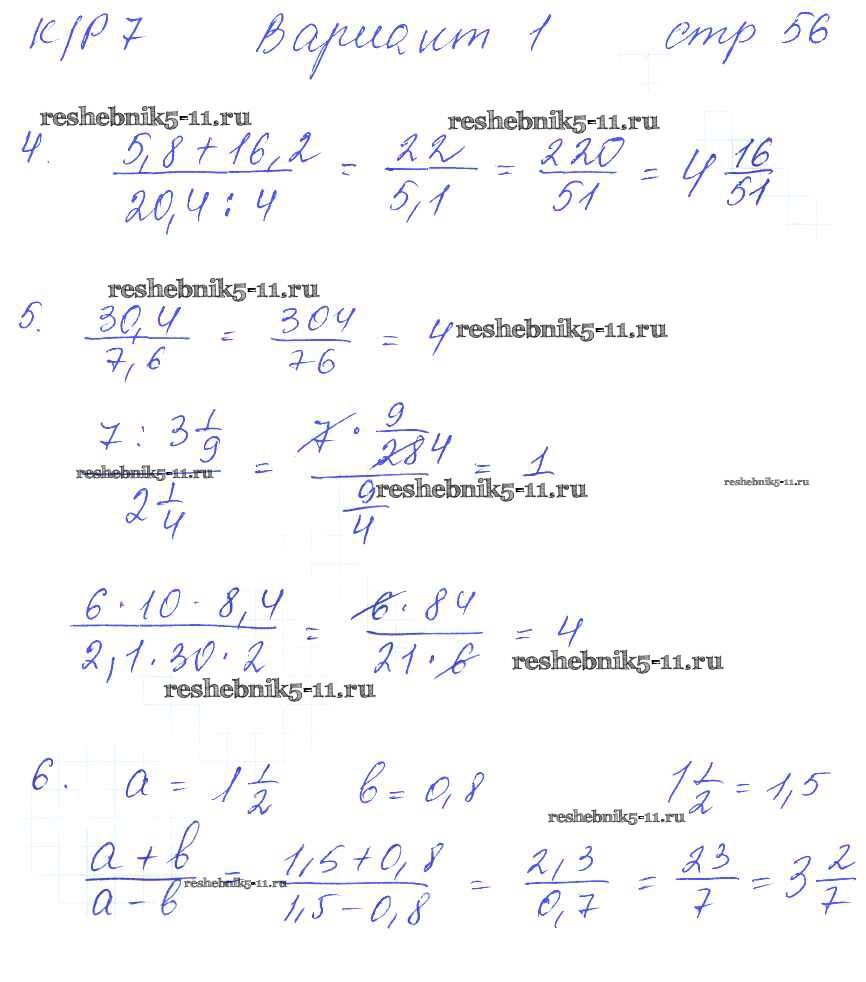 К/Р 7 Вариант 1 стр 56
reshebnik5-11.ru reshebnik5-11.ru
4. (5,8 + 16,2)/(20,4 : 4) = 22/5,1 = 220/51 = 4 16/51
reshebnik5-11.ru
5. 30,4/7,6 = 304/76 = 4 reshebnik5-11.ru
(7 : 3 1/9)/(2 1/4) = (7 · 9/28 4)/(9/4) = 1
reshebnik5-11.ru reshebnik5-11.ru reshebnik5-11.ru
(6 · 10 · 8,4)/(2,1 · 30 · 2) = (6 · 84)/(21 · 6) = 4
reshebnik5-11.ru reshebnik5-11.ru
6. a = 1 1/2 в = 0,8 1 1/2 = 1,5
reshebnik5-11.ru
(a + в)/(a - в) = (1,5 + 0,8)/(1,5 - 0,8) = 2,3/0,7 = 23/7 = 3 2/7
reshebnik5-11.ru